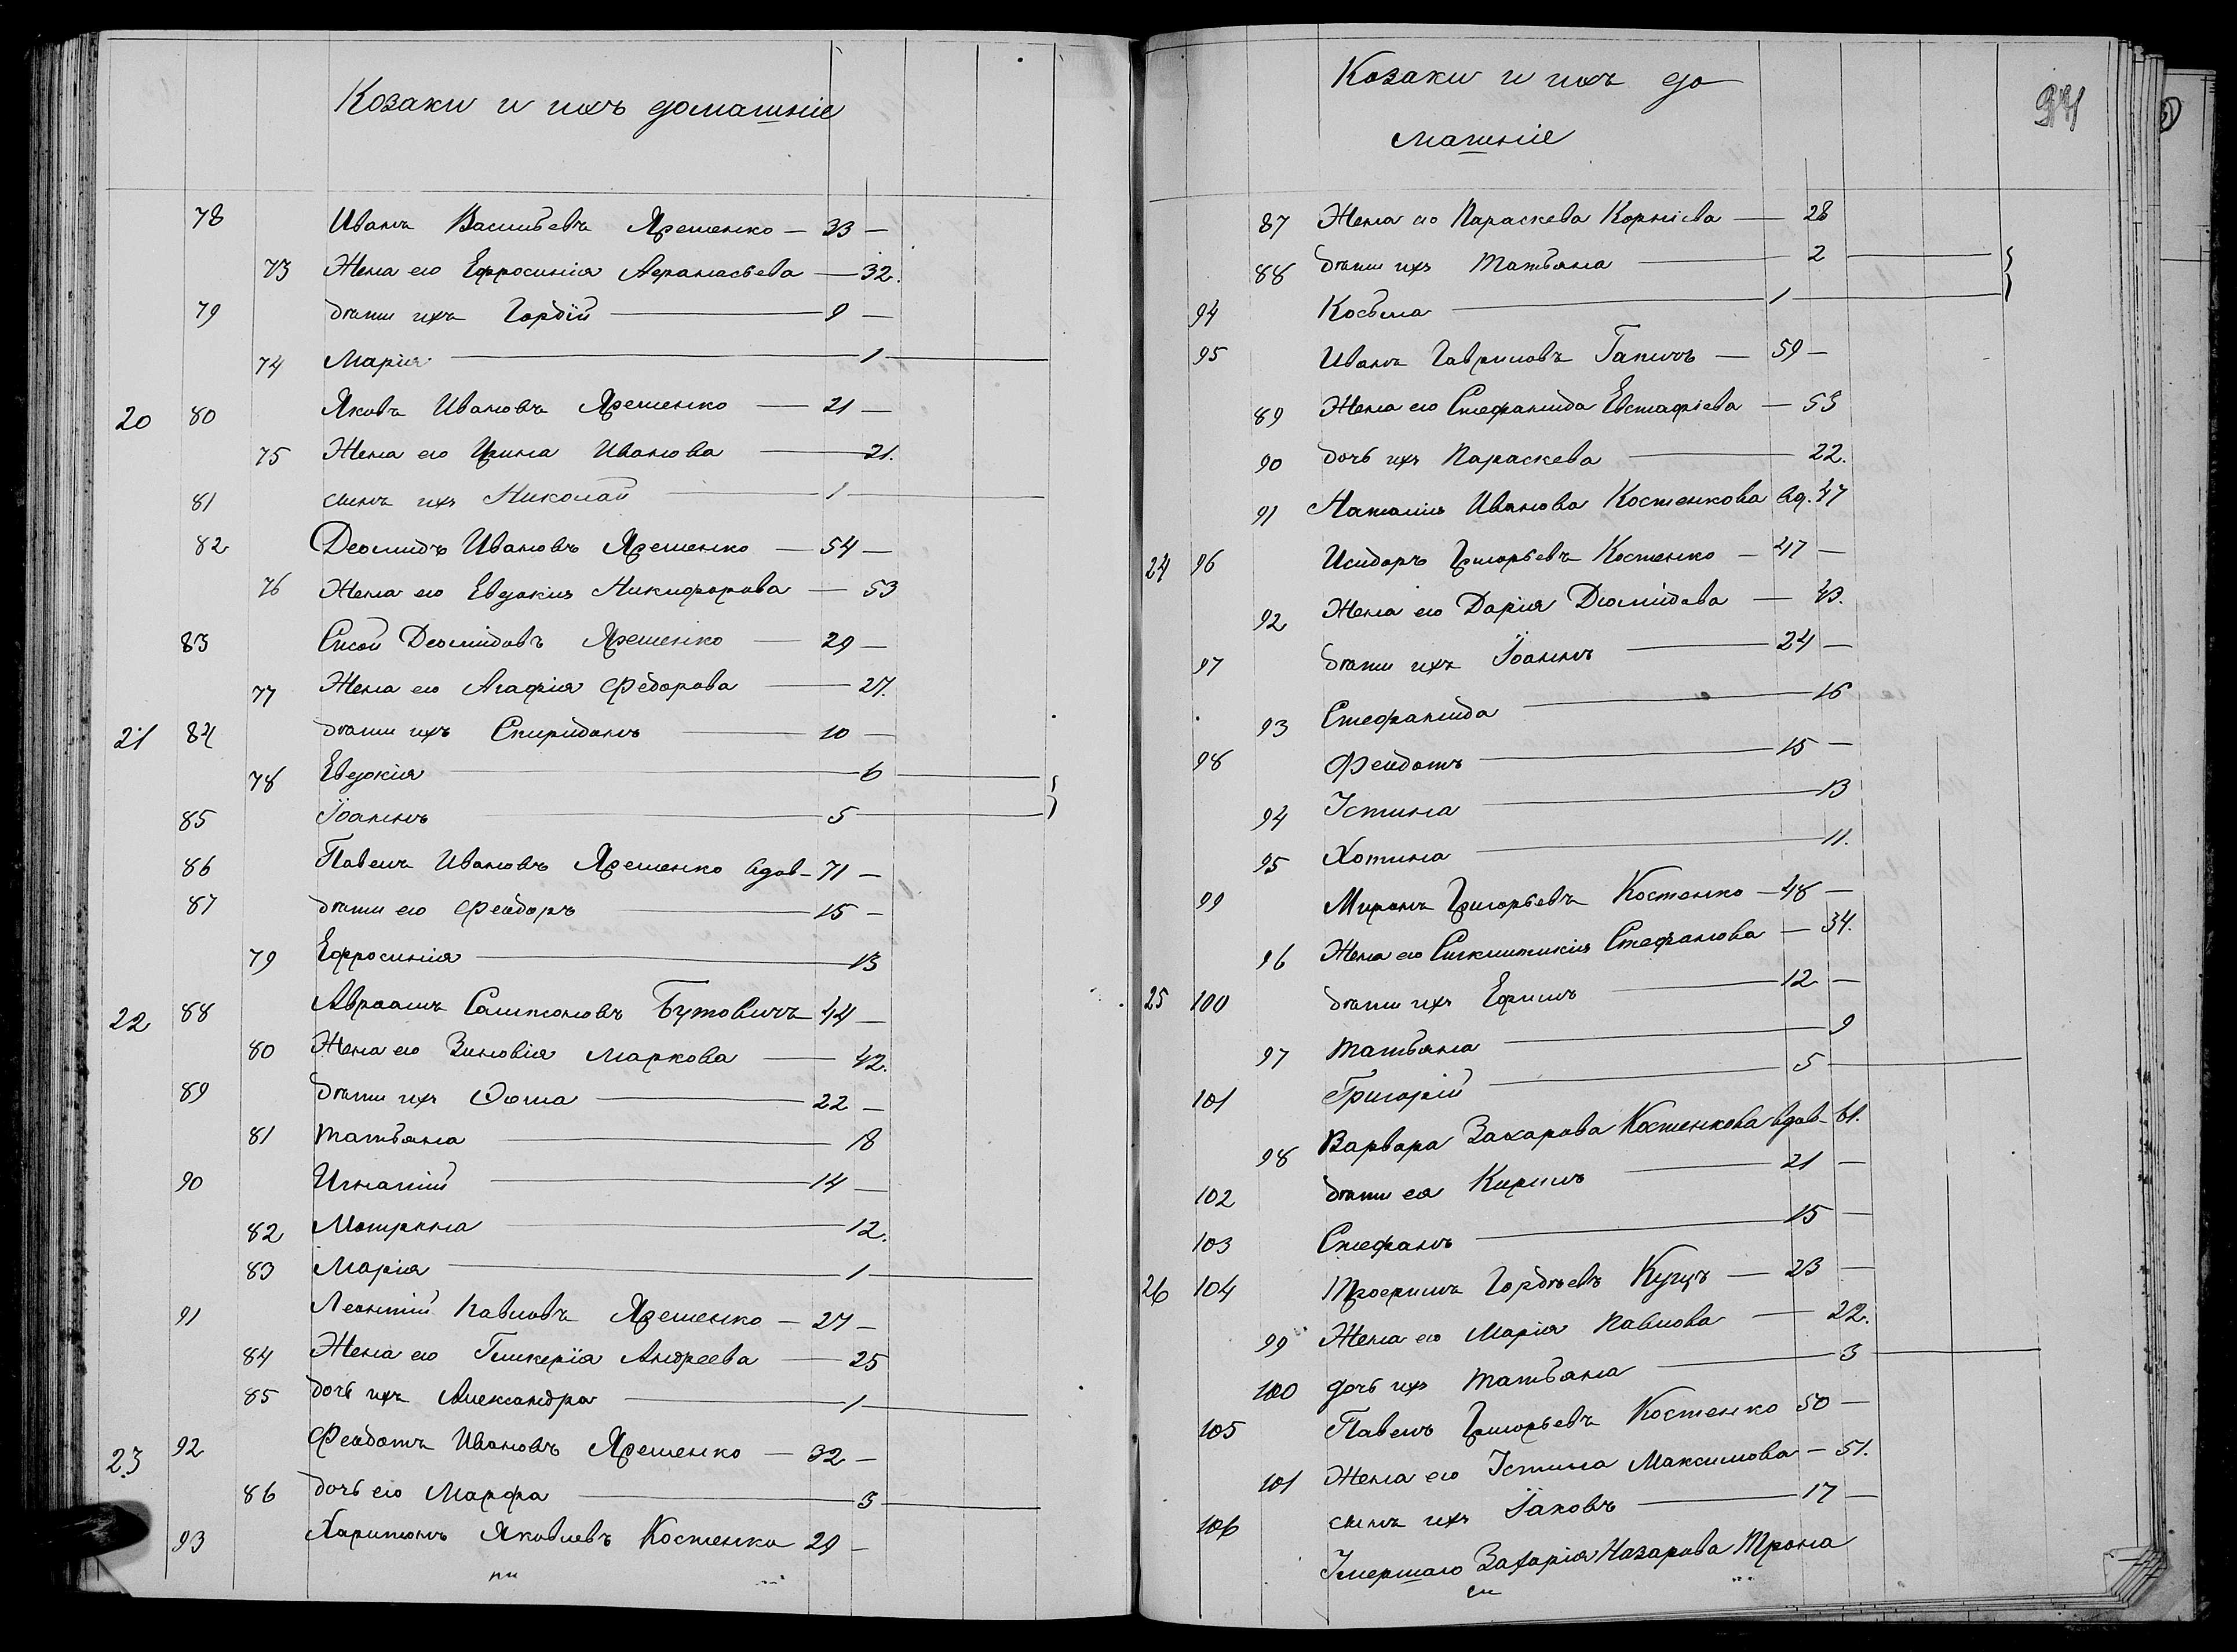 Козаки и ихъ домашніе
78 Иванъ Васильевъ Ярешенко — 33 —
73 Жена его Ефросинія Афанасьева — 32.
79 дѣти ихъ Гордій — 9 —
74 Марія — 1
20 80 Яковъ Ивановъ Ярешенко — 21 —
75 Жена его Ирина Иванова — 21.
81 сынъ ихъ Николай — 1
82 Деомидъ Ивановъ Ярешенко — 54 —
76 Жена его Евдокія Никифорова — 53
83 Сисой Деомідовъ Ярешенко — 29 —
77 Жена его Агафія Федорова — 27.
21 84 дѣти ихъ Спиридонъ — 10 —
78 Евдокія — 6
85 Іоаннъ — 5
86 Павелъ Ивановъ Ярешенко вдов — 71 —
87 дѣти его Феодоръ — 15 —
79 Ефросинія — 13
22 88 Авраамъ Сампсоновъ Бутовичъ 44 —
80 Жена его Зиновія Маркова — 42.
89 дѣти ихъ Ѳома — 22 —
81 Татьяна — 18
90 Игнатій — 14 —
82 Мотрина — 12.
83 Марія — 1
91 Леонтій Павловъ Ярешенко — 27 —
84 Жена его Гликерія Андреева — 25
85 дочь ихъ Александра — 1
23 92 Феодотъ Ивановъ Ярешенко — 32 —
86 дочь его Марфа — 3
93 Харитонъ Яковлевъ Костенко 29 —
Козаки и ихъ до
машніе
87 Жена его Параскева Корніева — 28
88 дѣти ихъ Татьяна — 2
94 Косьма — 1
95 Иванъ Гавриловъ Гапичъ — 59 —
89 Жена его Стефанида Евстафіева — 53
90 дочь ихъ Параскева — 22.
91 Наталія Иванова Костенкова вд. 47
24 96 Исидоръ Григорьевъ Костенко — 47 —
92 Жена его Дарія Диомідова — 43.
97 дѣти ихъ Іоаннъ — 24 —
93 Стефанида — 16
98 Феодотъ — 15 —
94 Устина — 13
95 Хотина — 11.
99 Миронъ Григорьевъ Костенко — 48 —
96 Жена его Синклитикія Стефанова — 34.
25 100 дѣти ихъ Ефимъ — 12 —
97 Татьяна — 9
101 Григорій — 5
98 Варвара Захарова Костенкова вдов — 61.
102 дѣти ея Кирилъ — 21 —
103 Стефанъ — 15 —
26 104 Трофимъ Гордѣевъ Куцъ — 23 —
99 Жена его Марія Павлова — 22.
100 дочь ихъ Татьяна — 3
105 Павелъ Григорьевъ Костенко 50 —
101 Жена его Устина Максимова — 51.
106 сынъ ихъ Іаковъ — 17 —
Умершаго Захарія Назарова Трона